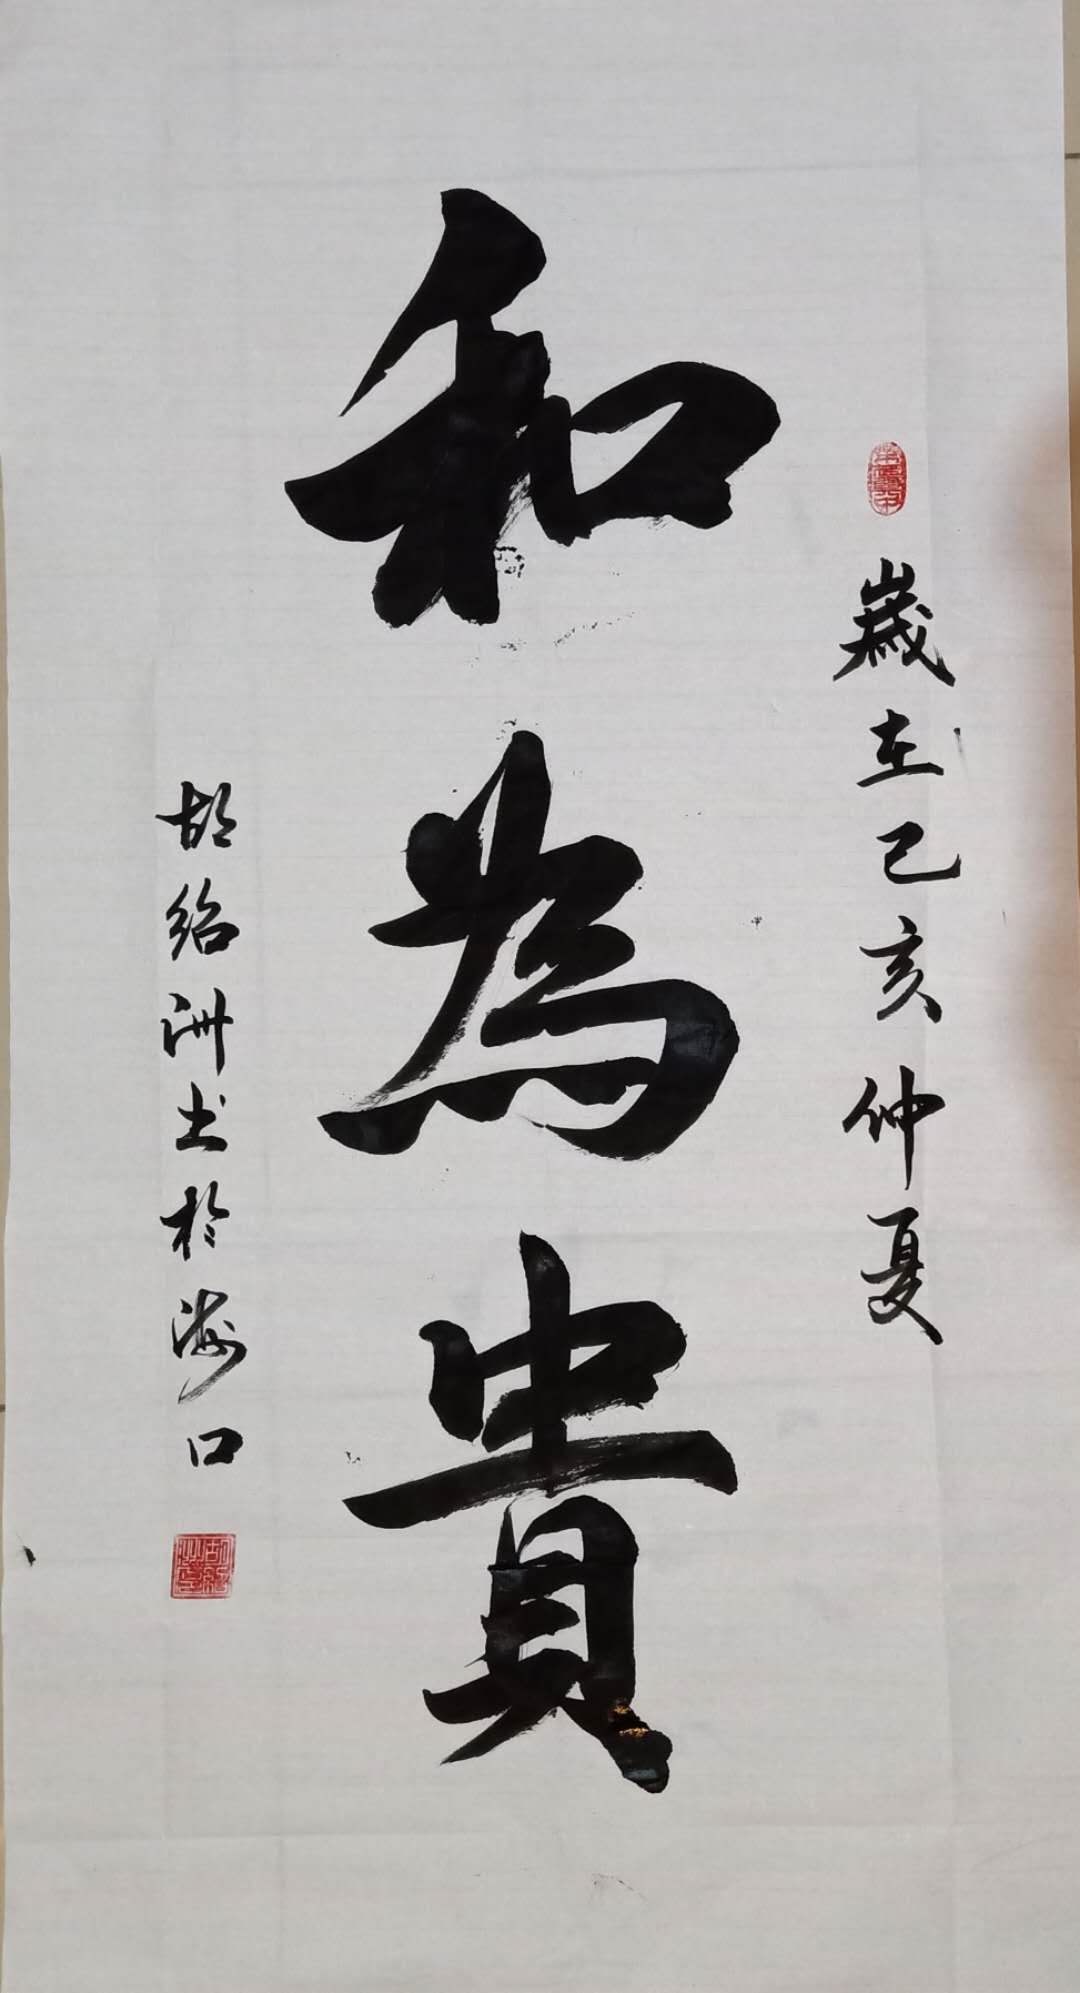 和為貴
歲在己亥仲夏
胡绍洲书於海口